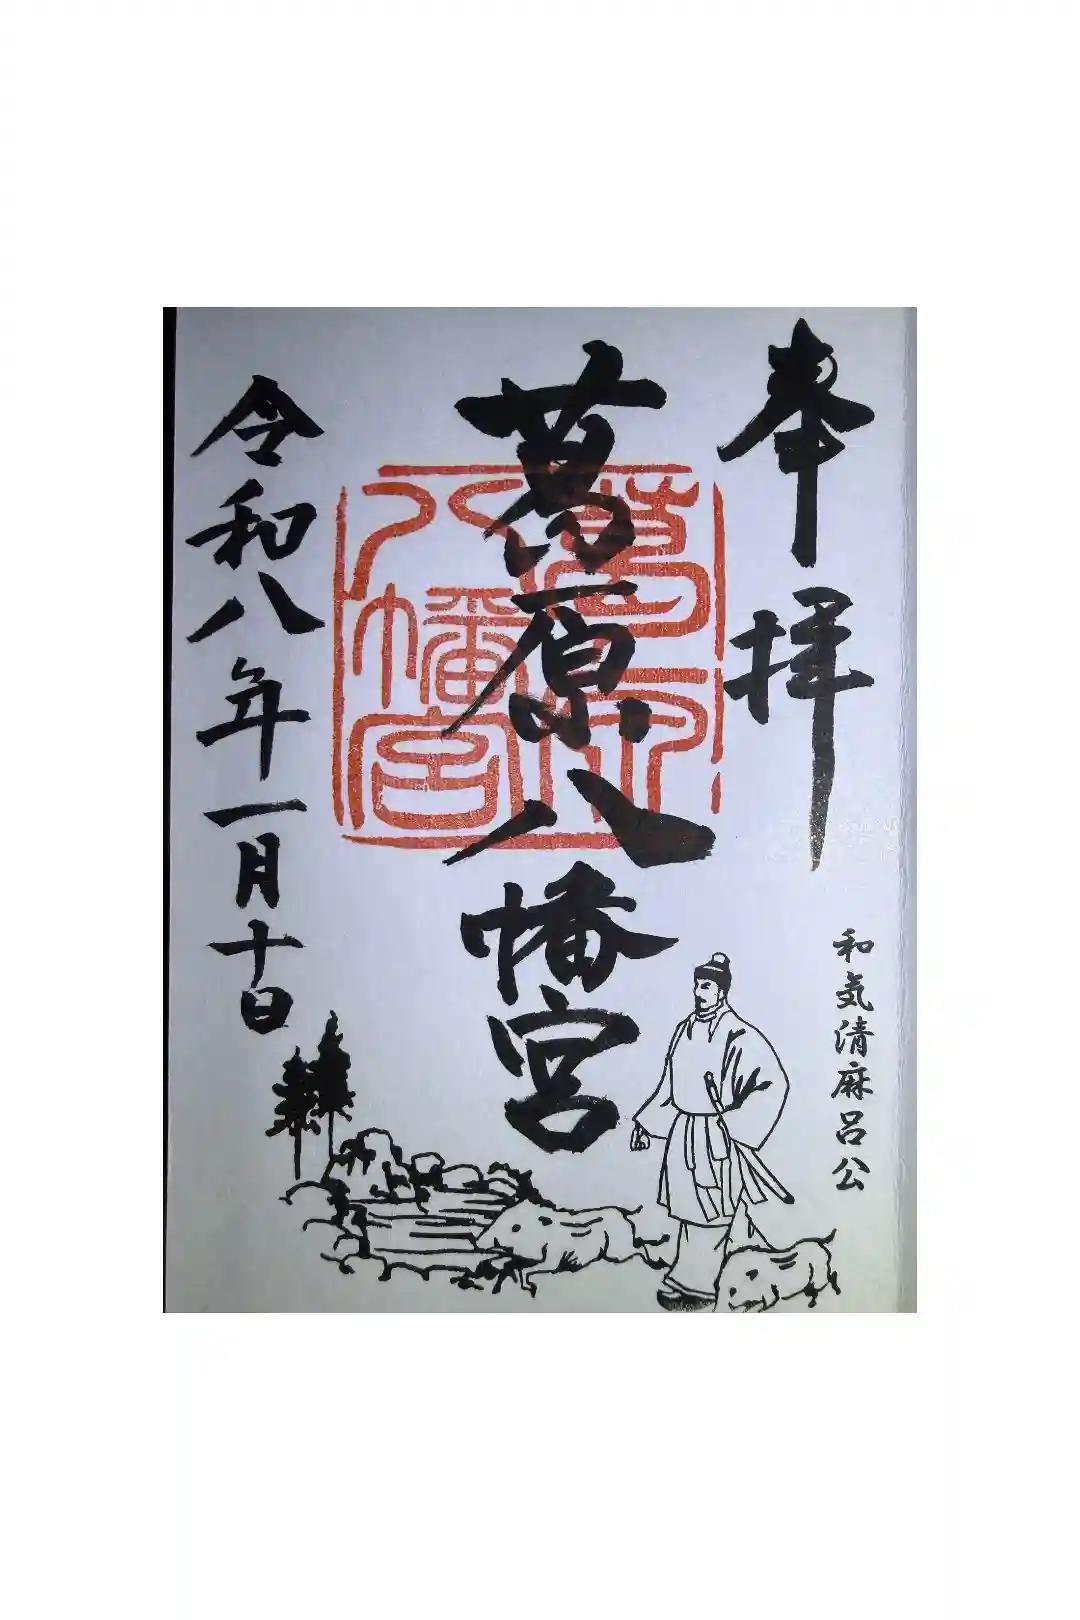 奉拝
和気清麻呂公
葛原八幡宮
葛原
八幡宮
令和八年一月十日